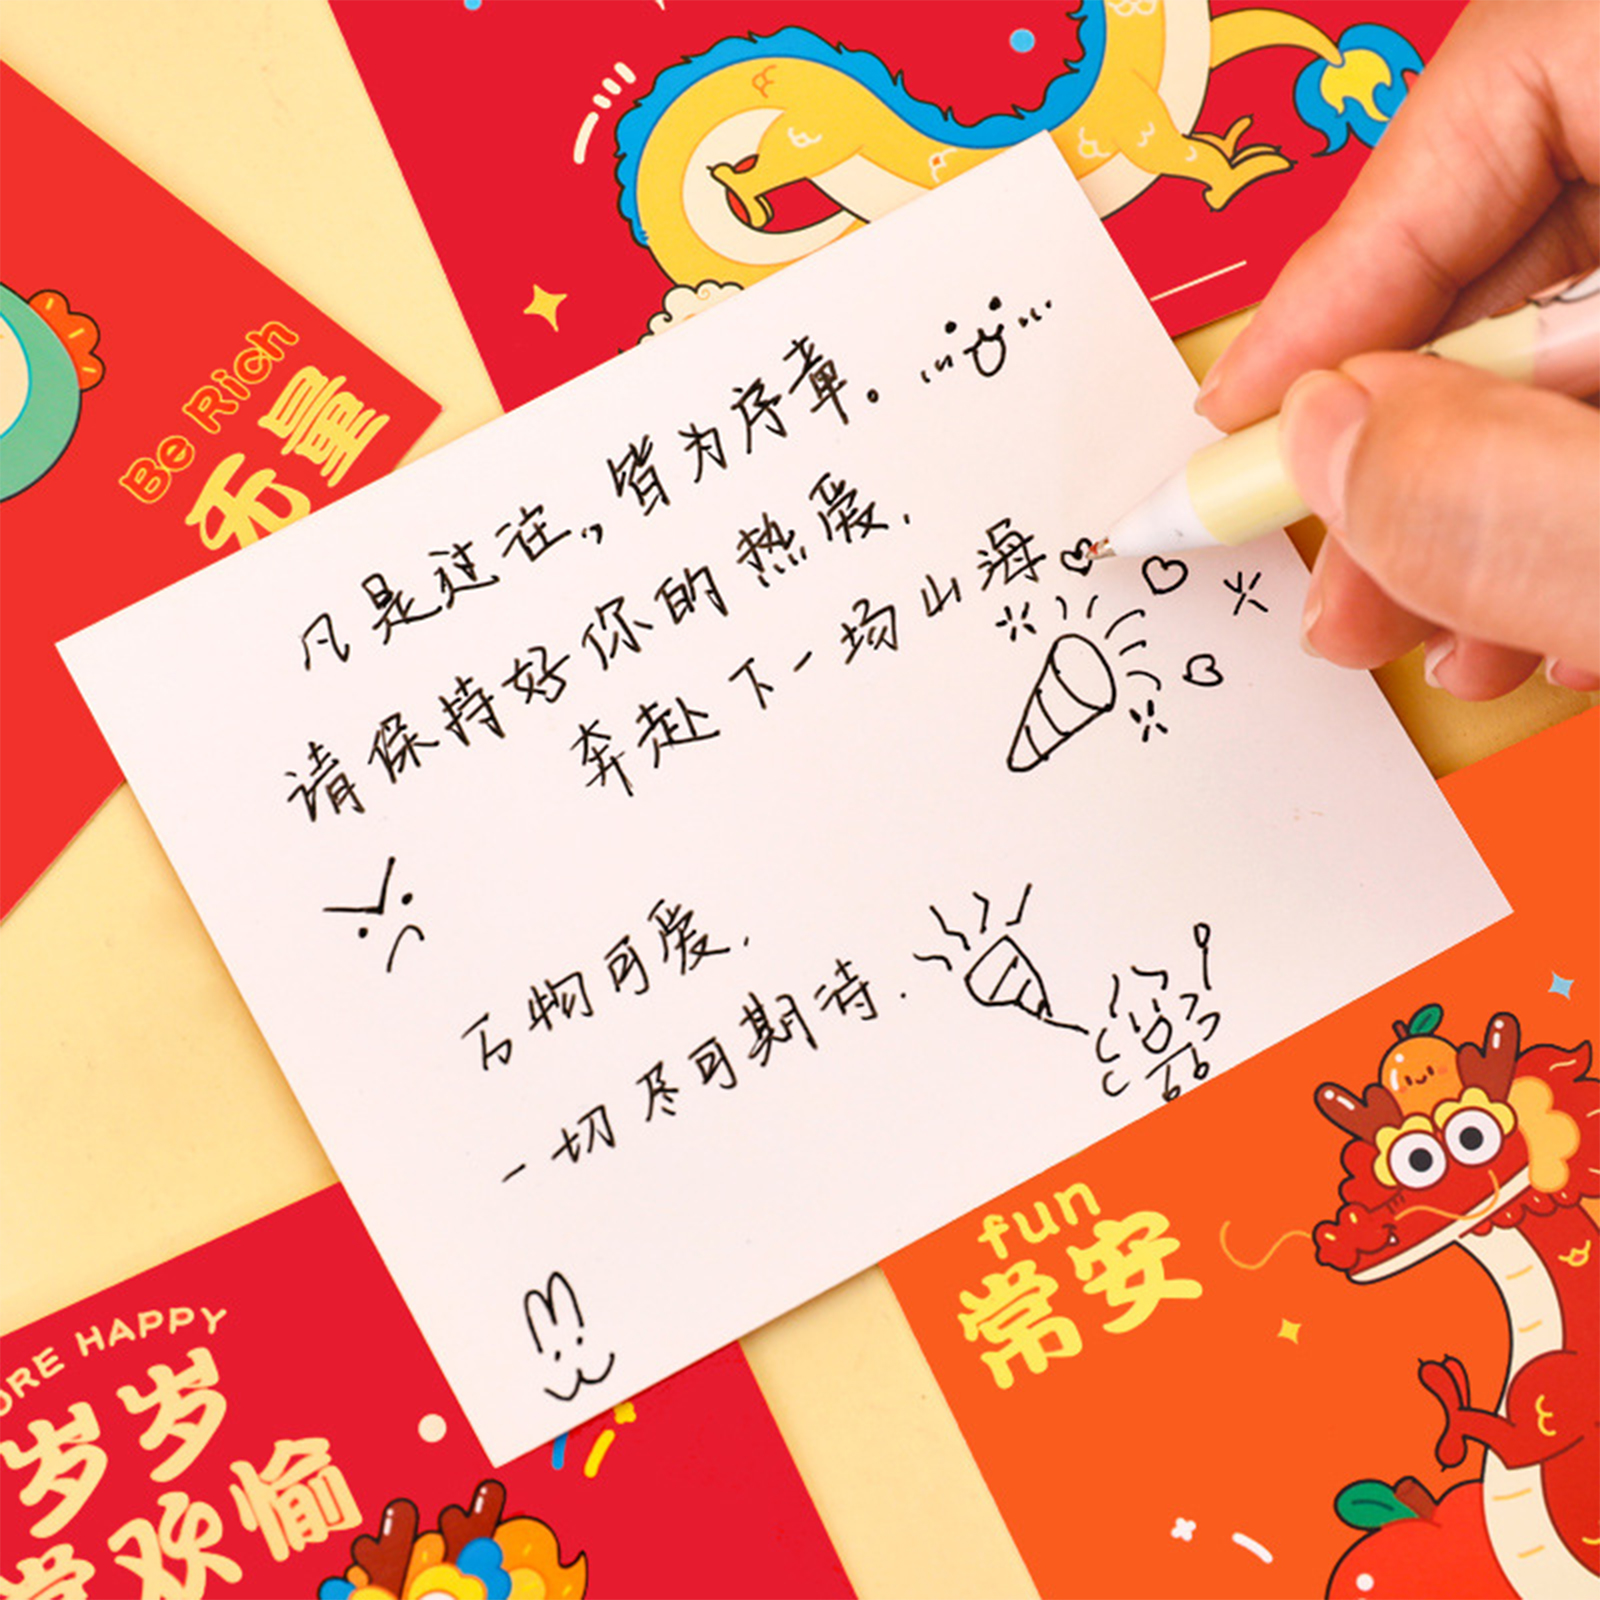 Be Rich
无量
凡是过往，皆为序章。
请保持好你的热爱.
奔赴下一场山海
万物可爱.
一切尽可期待.
fun
常安
ORE HAPPY
岁岁
常欢愉